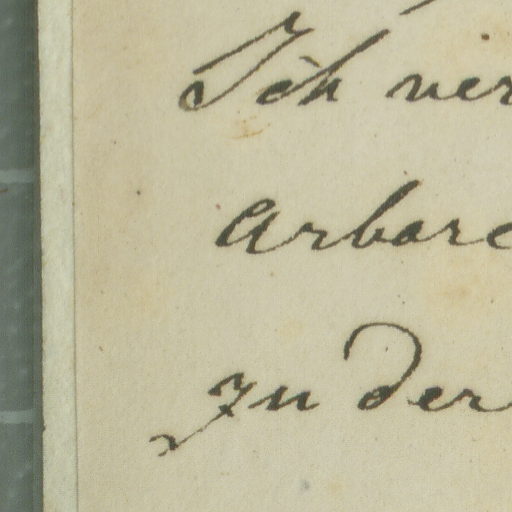 Ich ver
Arbore
zu der